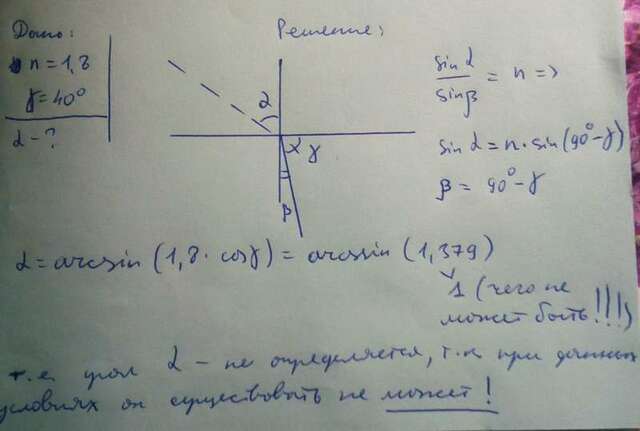 Дано:
n = 1,8
γ = 40°
α - ?
Решение:
α
γ
β
sin α / sin β = n =>
sin α = n · sin (90° - γ)
β = 90° - γ
α = arcsin (1,8 · cos γ) = arcsin (1,379)
> 1 (чего не
может быть!!!)
т.е. угол α - не определяется, т.к. при данных
условиях он существовать не может!